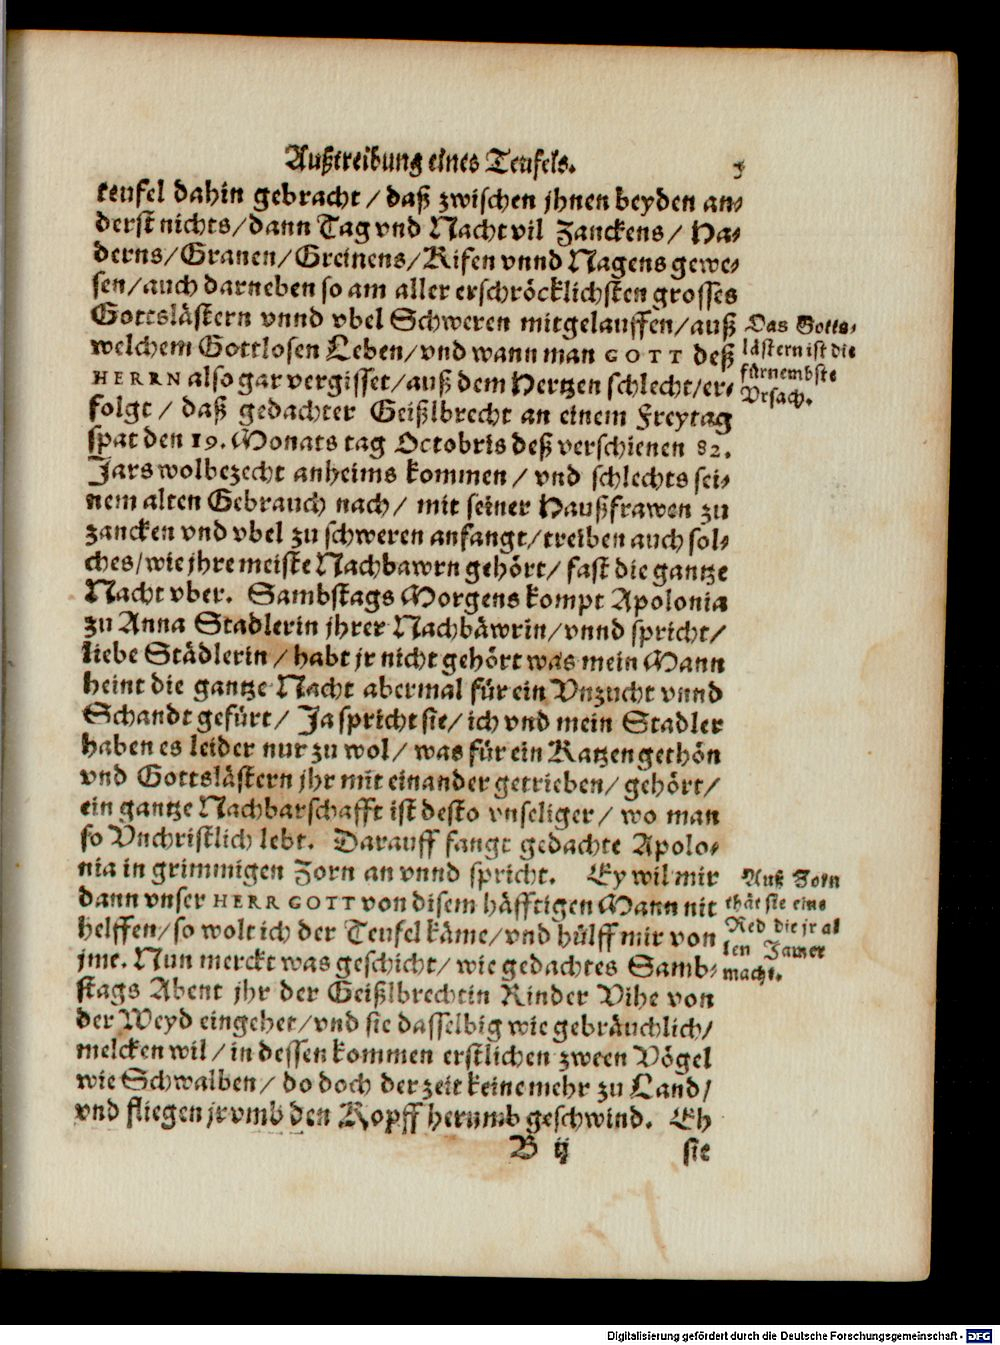 Außtreibung eines Teufels. 3
teufel dahin gebracht / daß zwischen jhnen beyden an-
derst nichts / dann Tag vnd Nacht vil Zanckens / Ha-
derns / Granen / Greinens / Kifen vnnd Nagens gewe-
sen / auch darneben so am aller erschröcklichsten grosses
Gottslästern vnnd vbel Schweren mitgelauffen / auß
welchem Gottlosen Leben / vnd wann man GOTT deß
HERRN also gar vergisset / auß dem Hertzen schlecht / er-
folgt / daß gedachter Geißlbrecht an einem Freytag
spat den 19. Monats tag Octobris deß verschienen 82.
Jars wolbezecht anheims kommen / vnd schlechts sei-
nem alten Gebrauch nach / mit seiner Haußfrawen zu
zancken vnd vbel zu schweren anfangt / treiben auch sol-
ches / wie jhre meiste Nachbawrn gehört / fast die gantze
Nacht vber. Sambstags Morgens kompt Apolonia
zu Anna Stadlerin jhrer Nachbäwrin / vnnd spricht /
liebe Städlerin / habt jr nicht gehört was mein Mann
heint die gantze Nacht abermal für ein Vnzucht vnnd
Schandt gefürt / Ja spricht sie / ich vnd mein Stadler
haben es leider nur zu wol / was für ein Katzengethön
vnd Gottslästern jhr mit einander getrieben / gehört /
ein gantze Nachbarschafft ist desto vnseliger / wo man
so Vnchristlich lebt. Darauff fangt gedachte Apolo-
nia in grimmigen Zorn an vnnd spricht. Ey wil mir
dann vnser HERR GOTT von disem häfftigen Mann nit
helffen / so wolt ich der Teufel käme / vnd hülff mir von
jme. Nun merckt was geschicht / wie gedachtes Samb-
stags Abent jhr der Geißlbrechtin Rinder Vihe von
der Weyd eingehet / vnd sie dasselbig wie gebräuchlich /
melcken wil / in dessen kommen erstlichen zween Vögel
wie Schwalben / do doch der zeit keine mehr zu Land /
vnd fliegen jr vmb den Kopff herumb geschwind. Eh
B ij sie
Das Gotts-
lästern ist die
fürnembste
Vrsach.
Auß Zorn
thät sie eine
Red die jr al
len Jamer
macht.
Digitalisierung gefördert durch die Deutsche Forschungsgemeinschaft - DFG